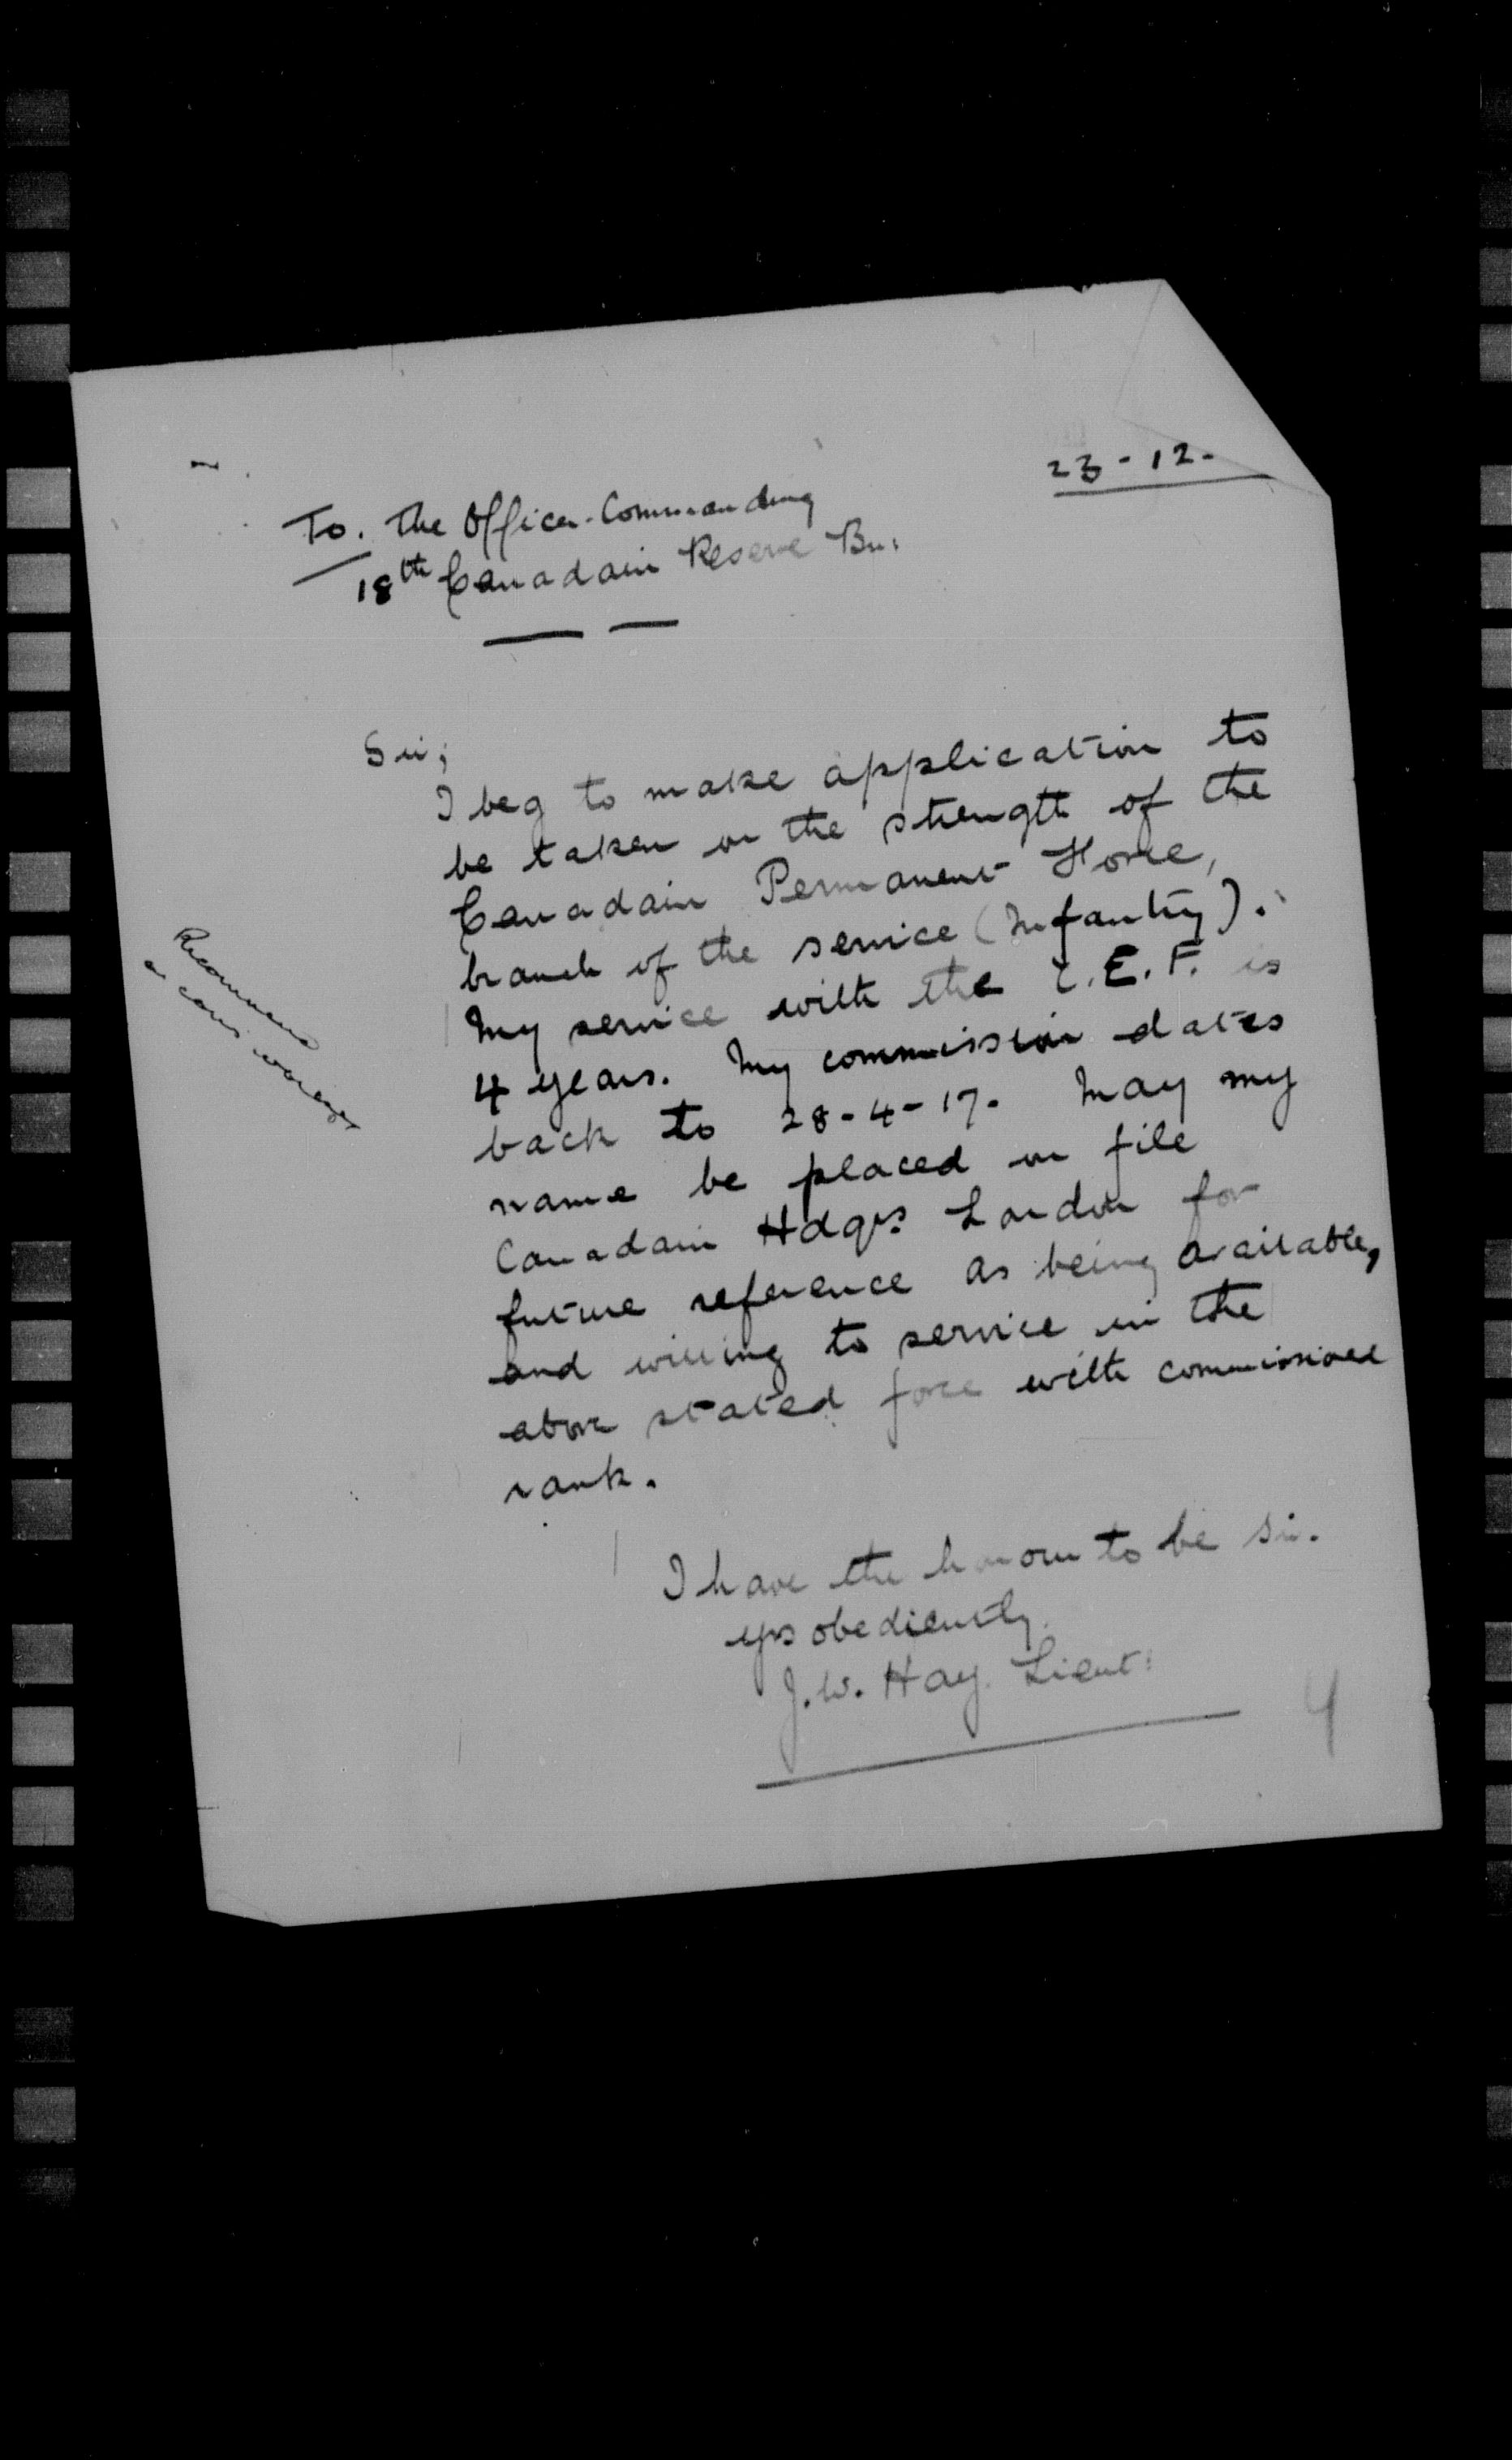 23-12.
To. The Officer. Commanding
18th Canadain Reserve Bn.
Sir;
I beg to make application to
be taken on the strength of the
Canadain Permanent Force,
branch of the service (Infantry).
My service with the C.E.F. is
4 years. My commission dates
back to 28-4-17. May my
name be placed on file
Canadain Hdqrs London for
future reference as being available,
and willing to service in the
above stated force with commissioned
rank.
I have the honour to be Sir.
yrs obediently
J.W. Hay. Lieut:
4
Recommend